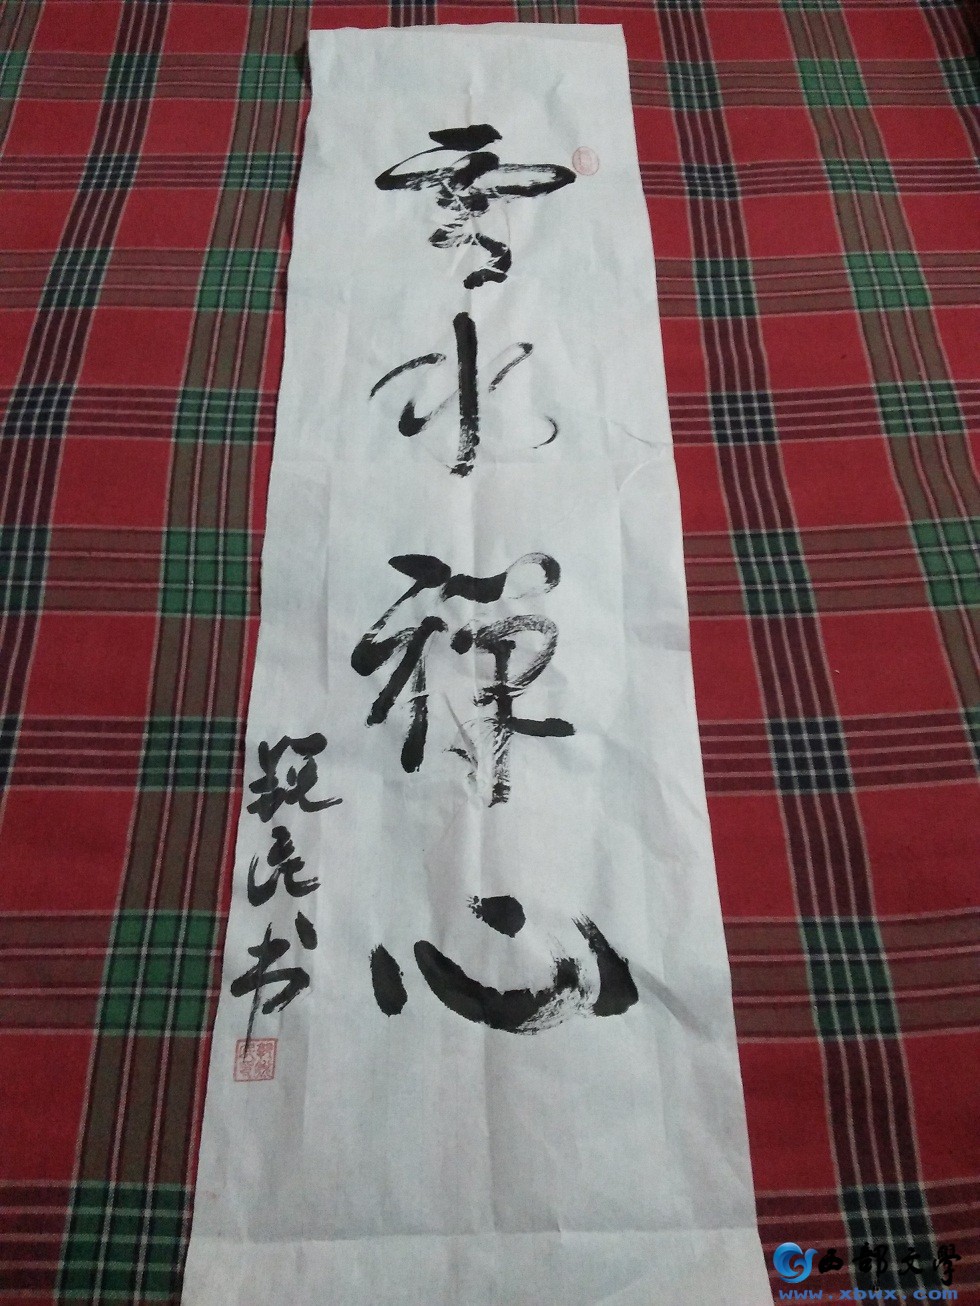 雲水禅心
书
西部文學
www.xbwx.com